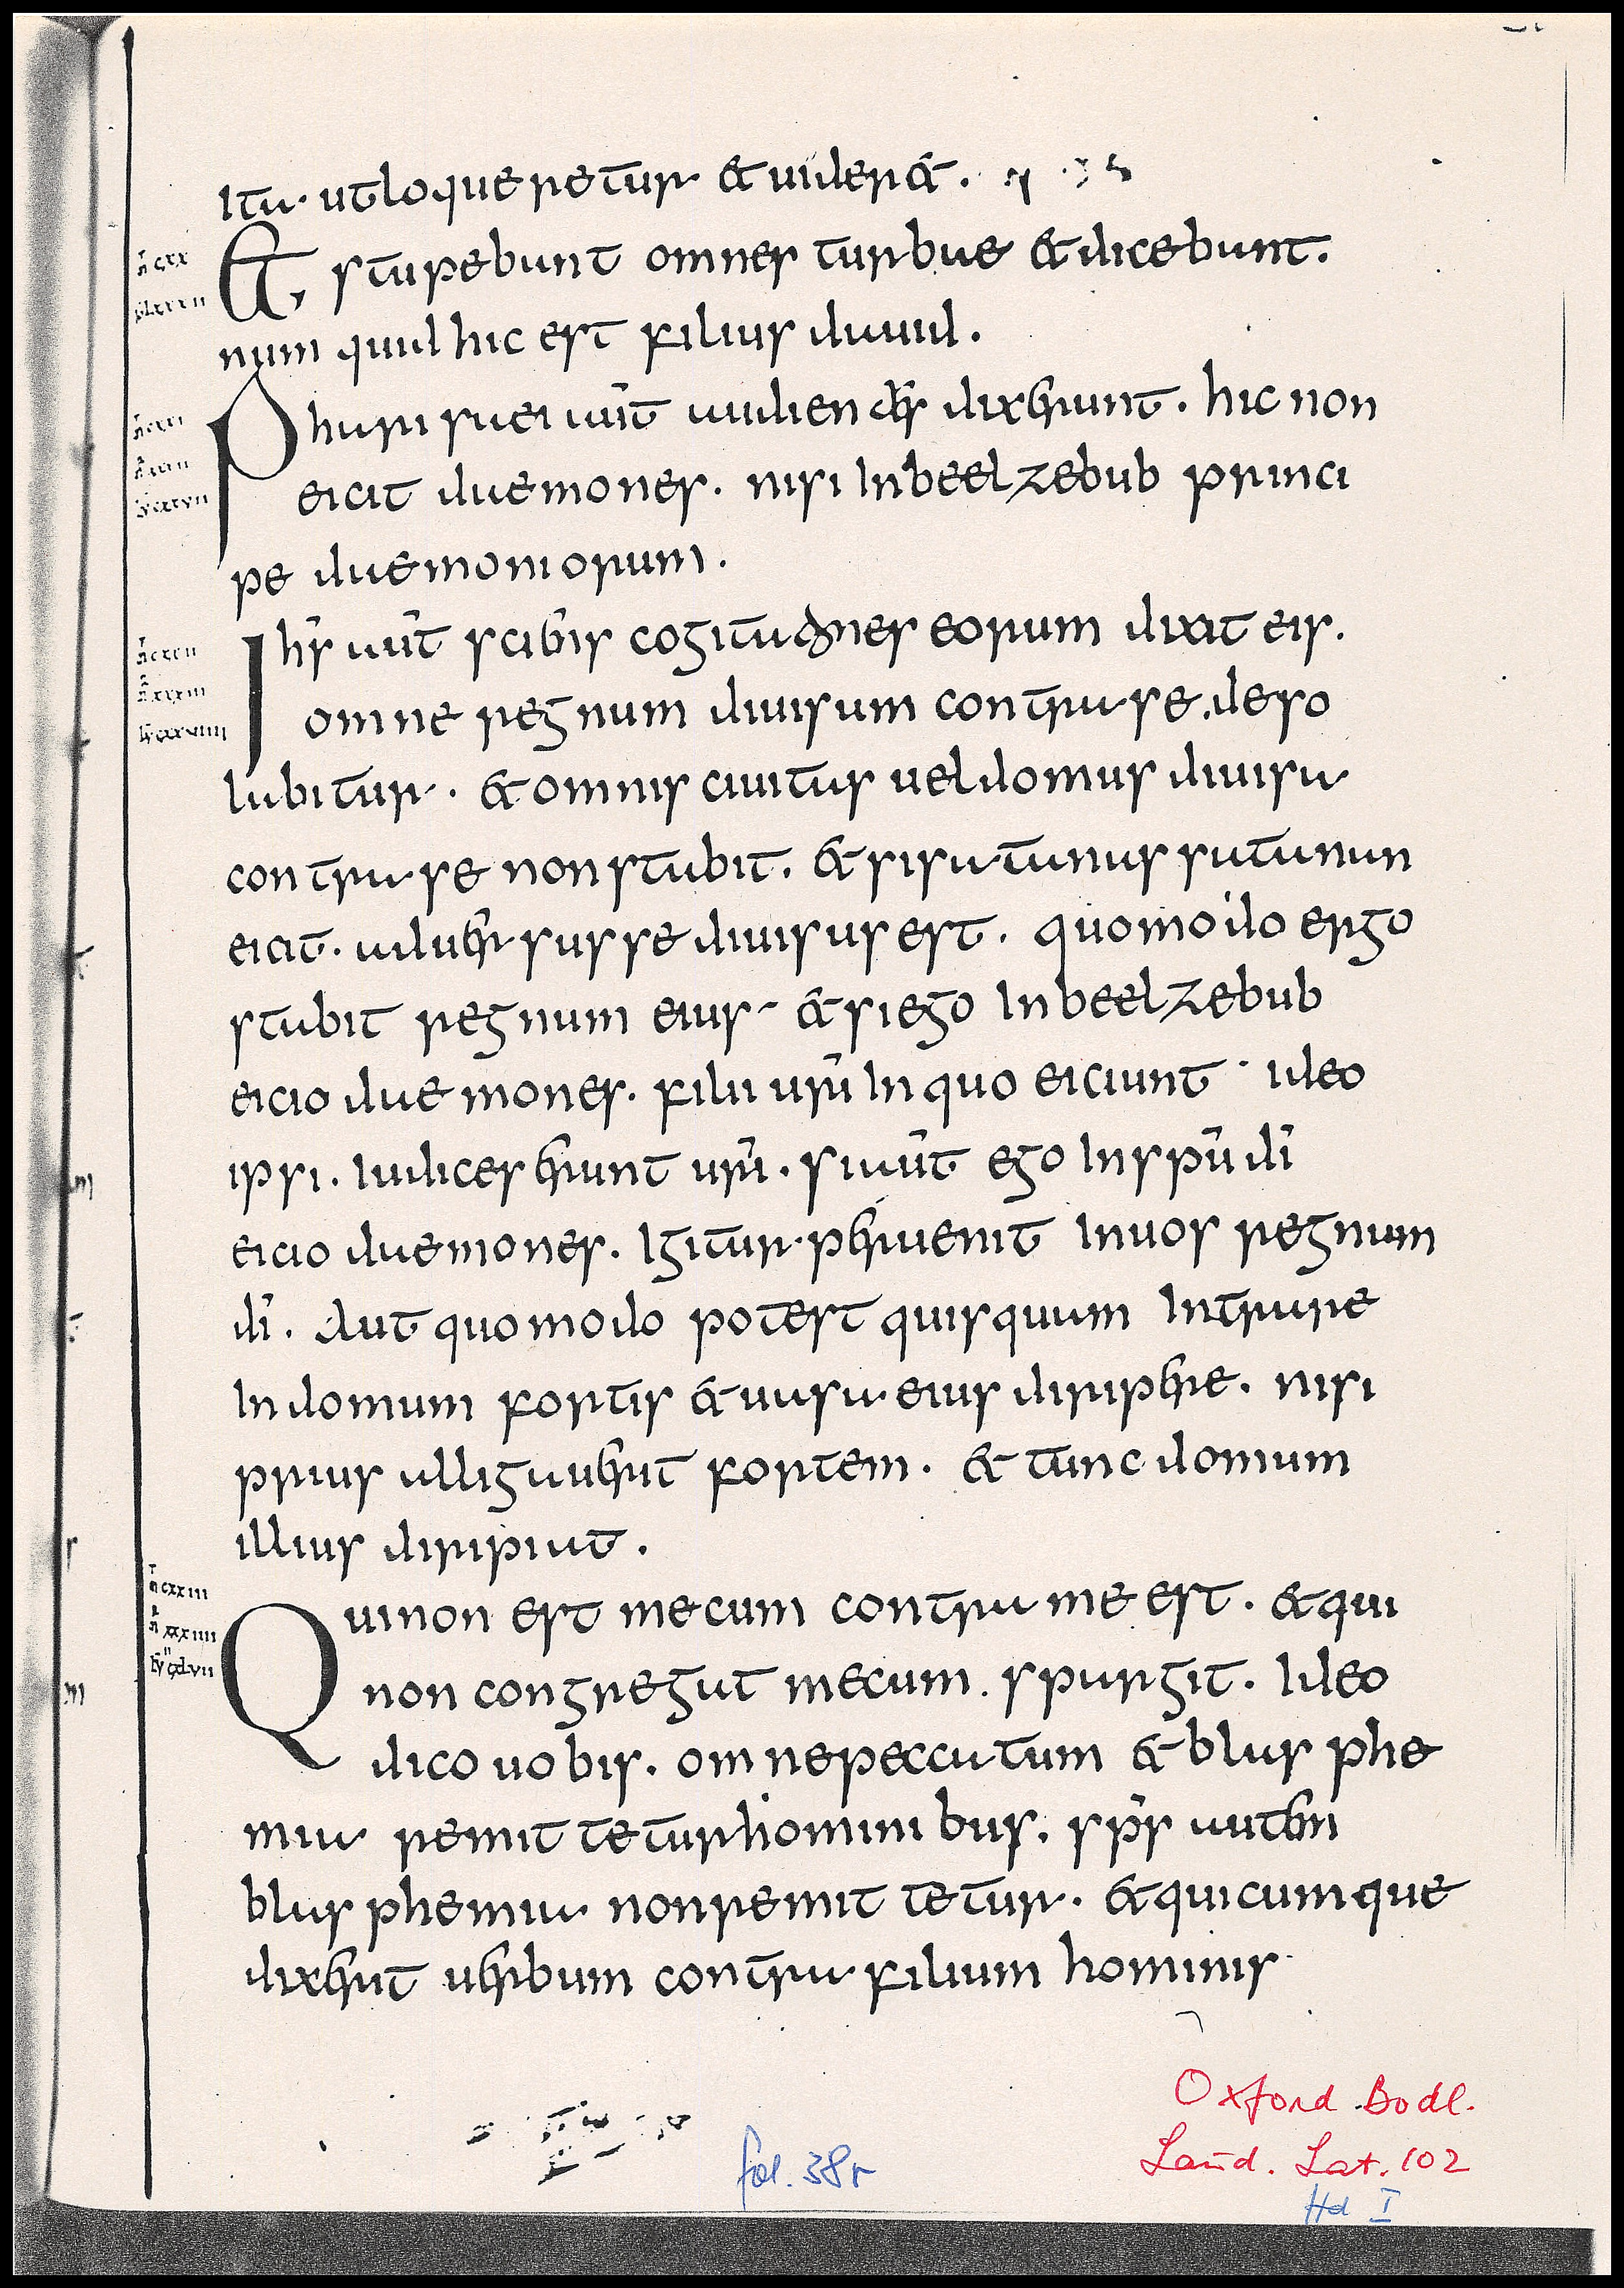 Ita ut loqueretur & uider&.
m̄ cxx
Et stupebant omnes turbae & dicebant.
num quid hic est filius dauid.
Pharisaei aūt audientes dixerunt. hic non
eicit daemones. nisi In beelzebub princi
pe daemoniorum.
Ihs̄ aūt sciens cogitationes eorum dixit eis.
omne regnum diuisum contra se. deso
labitur. & omnis ciuitas uel domus diuisa
contra se non stabit. & si satanas satanan
eicit. aduersus se diuisus est. quomodo ergo
stabit regnum eius & si ego In beelzebub
eicio daemones. filii ur̄i In quo eiciunt ideo
ipsi. Iudices erunt ur̄i. si aūt ego In spū dī
eicio daemones. Igitur peruenit In uos regnum
dī. Aut quomodo potest quisquam Intrare
In domum fortis & uasa eius diripere. nisi
prius alligauerit fortem. & tunc domum
illius diripiat.
m̄ cxxiii
Qui non est mecum contra me est. & qui
non congregat mecum. spargit. Ideo
dico uobis. omne peccatum & blasphe
mia remittetur hominibus. sp̄s autem
blasphemia non remittetur. & quicumque
dixerit uerbum contra filium hominis
Oxford Bodl.
Laud. Lat. 102
fol. 38r
Hd I